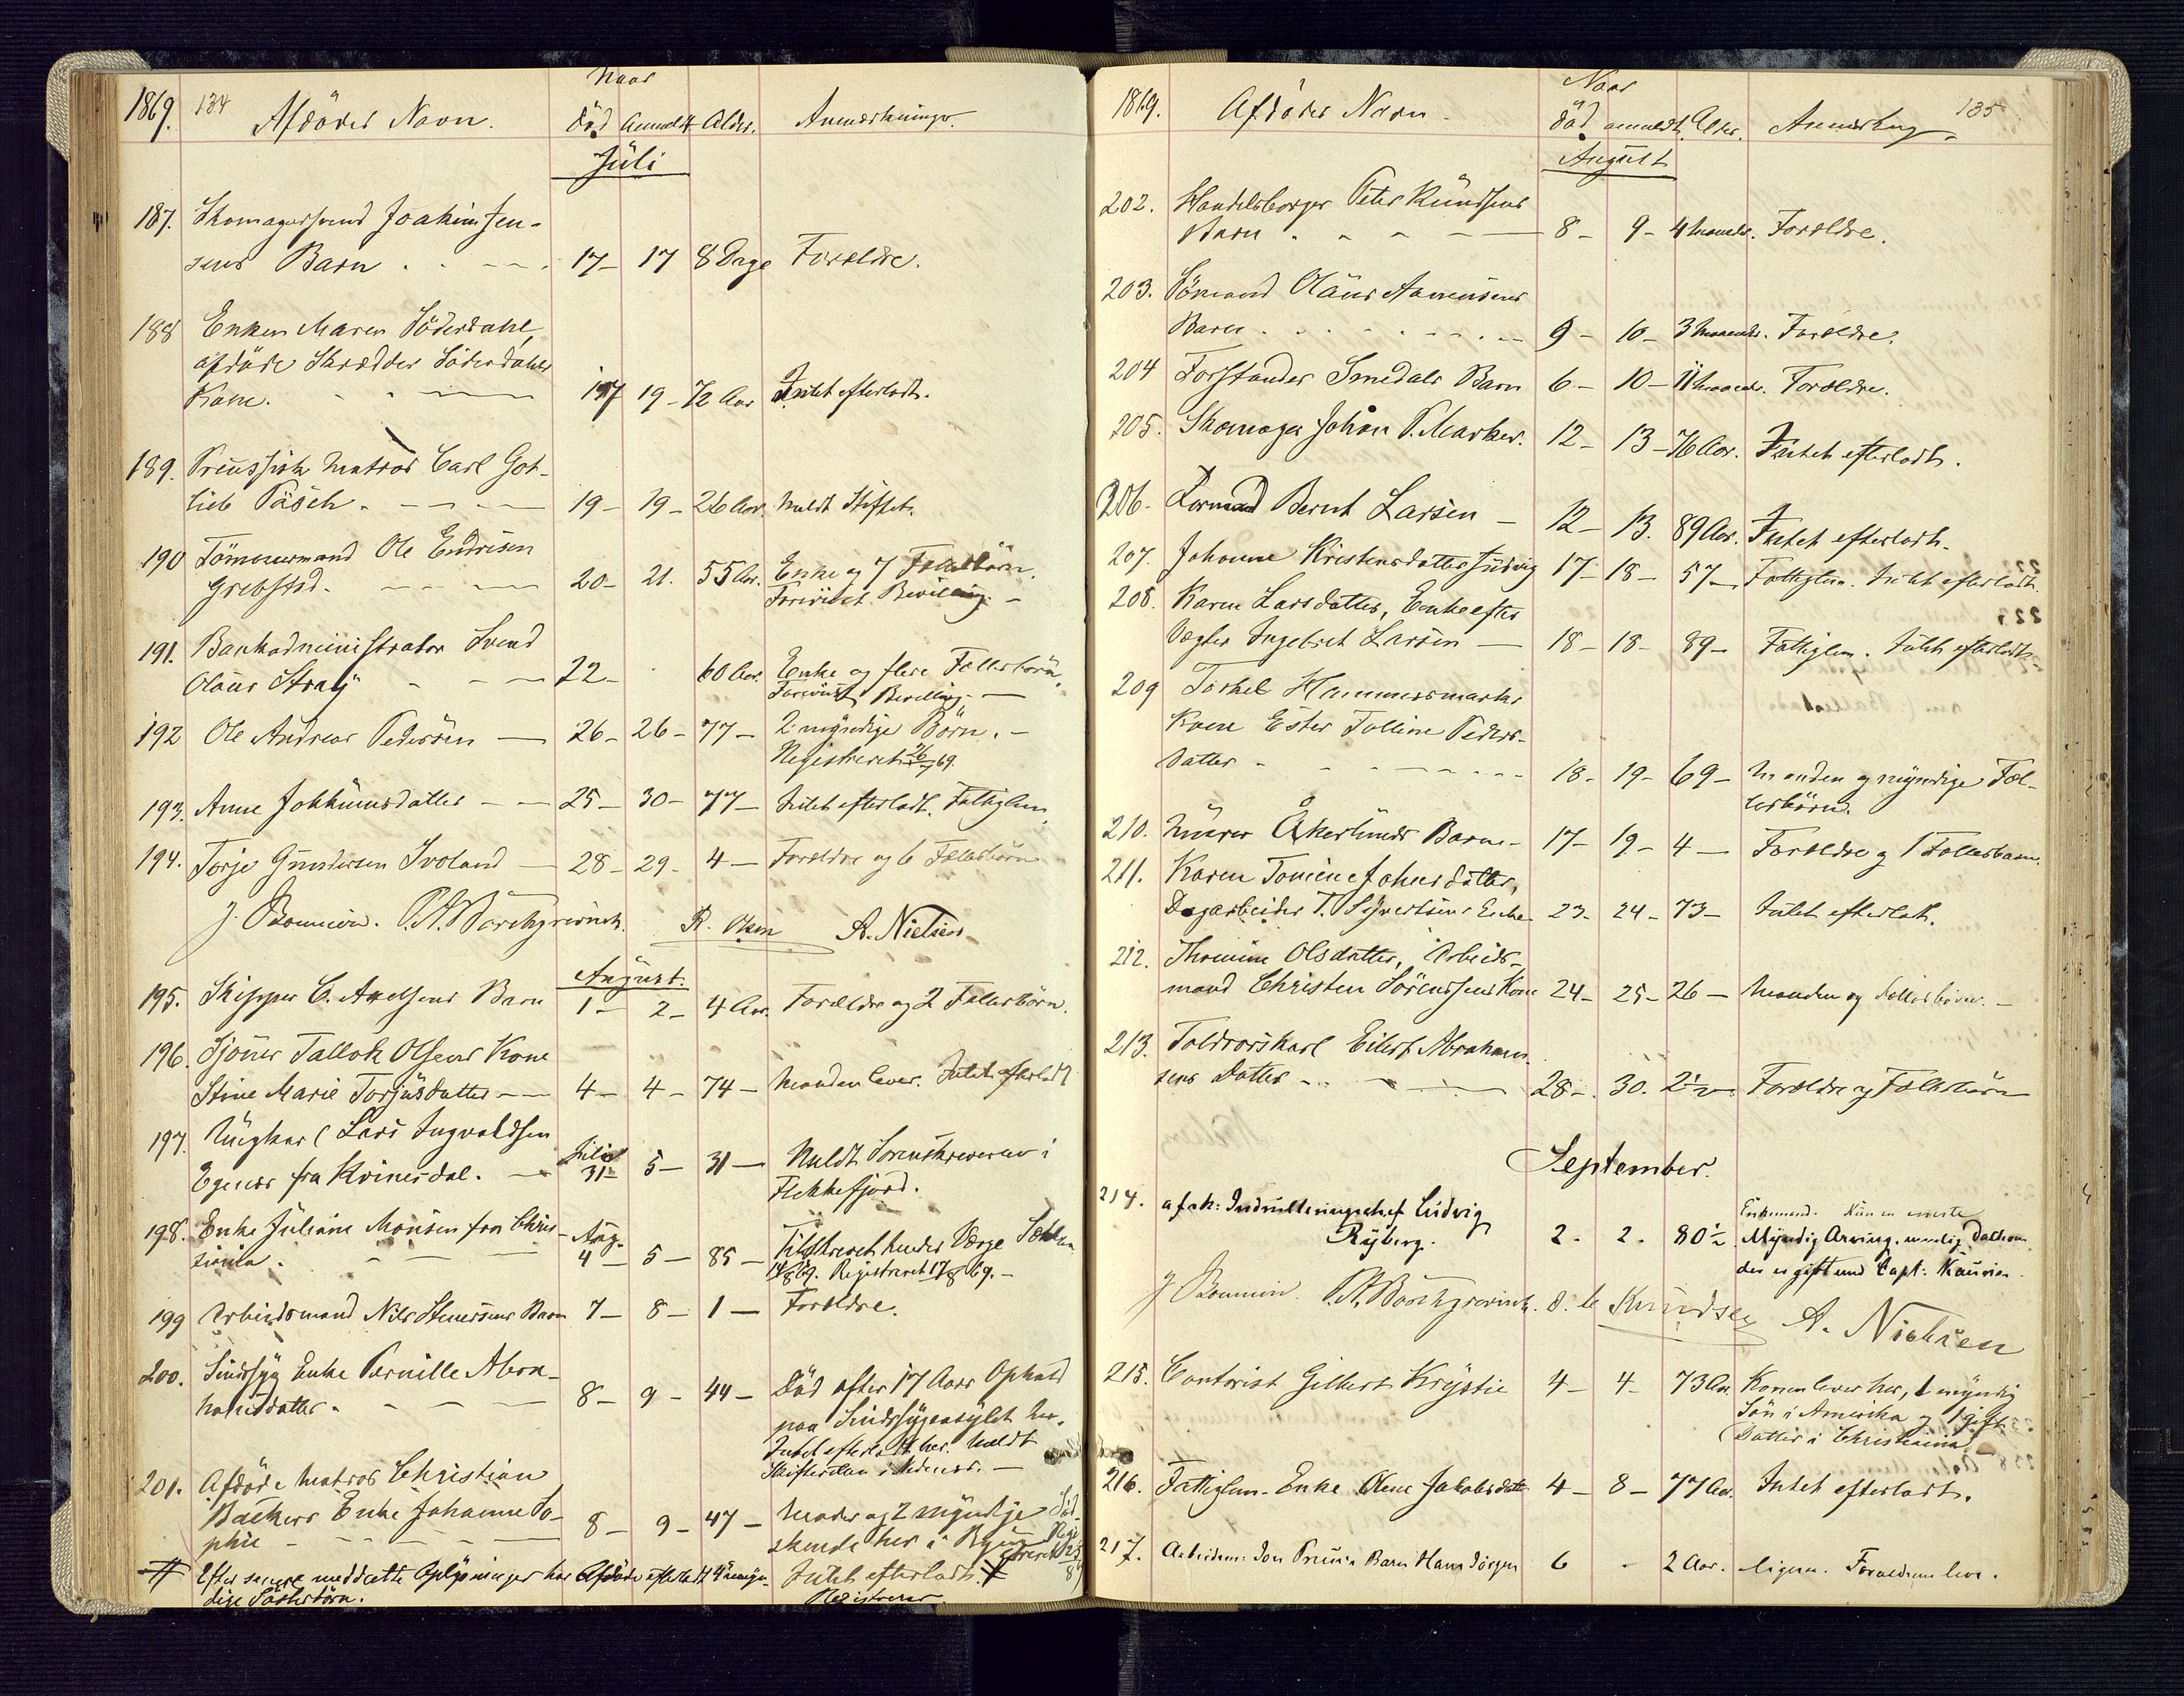 1869. 134 Afdødes Navn. Naar Død Anmeldt Alder. Anmærkninger.
Juli
187. Skomagersvend Joakim Jen-
sens Barn 17 – 17 8 Dage Forældre.
188 Enken Maren Söderdahl,
afdøde Skrædder Söderdahls
Kone. 17 19 – 72 Aar Intet efterladt.
189. Preussisk Matros Carl Got-
lieb Päsch. 19 – 19 – 26 Aar. Meldt Skiftet.
190 Tömmermand Ole Endresen
Grebstad. 20 – 21. 55 Aar. Enke og 7 Fællesbörn.
Foreviist Bevilling. –
191. Bankadministrator Svend
Olaus Stray 22 – 60 Aar. Enke og flere Fællesbörn.
Foreviist Bevilling. –
192 Ole Andreas Pedersen 26 – 26 – 77 – 2 myndige Börn. –
Registreret 26/7 69.
193. Anne Jokkumsdatter 25 – 30 – 77 – Intet efterladt. Fattiglem.
194. Torje Gundersen Ivoland 28 – 29 – 4 – Forældre og 6 Fællesbörn
P. A. Borchgrevink. R. Olsen A. Nielsen
August.
195. Skipper C. Axelsens Barn 1 – 2 – 4 Aar. Forældre og 2 Fællesbörn.
196. Sjöms Tallak Olsens Kone
Stine Marie Torjusdatter 4 – 4 – 74 – Manden lever. Intet efterladt
197. Ungkarl Lars Ingvaldsen
Egenes fra Kvinesdal. Juli 31 – 5 – 31 – Meldt Sorenskriveren i
Flekkefjord.
198. Enke Juliane Monsen fra Chris-
tiania. Aug. 4 – 5 – 85 – Tilskrevet hendes Værge
14/8 69. Registreret 17/8 69. –
199 Arbeidsmand Nils Steensens Barn 7 – 8 – 1 – Forældre.
200. Sindssyg Enke Pernille Abra-
hamsdatter. 8 – 9 – 44 – Död efter 17 Aars Ophold
paa Sindssygeasylet her.
Intet efterladt her. Meldt
Skifteretten i Nedenes. –
201. Afdöde Matros Christian
Backers Enke Johanne So-
phie 8 – 9 – 47 – Moder og 2 myndige Söd-
skende her i Byen
Intet efterladt. #
# Efter senere meddeelte Oplysninger har Afdöde efterladt 4 umyn-
dige Sösterbörn. Registreret
1869. Afdødes Navn. Naar Död anmeldt. Alder. Anmærkng 135
August
202. Handelsborger Peter Knudsens
Barn 8 – 9 – 4 Maaneder. Forældre.
203. Sömand Olaus Aanensens
Barn 9 – 10 – 3 Maaneder. Forældre.
204 Forstander Smedals Barn 6 – 10 – 11 Maaneder. Forældre.
205. Skomager Johan P. Marker. 12 – 13 – 76 Aar. Intet efterladt.
206. Formand Bernt Larsen 12 – 13. 89 Aar. Intet efterladt.
207. Johanne Kristensdatter Judvig 17 – 18 – 57 – Fattiglem. Intet efterladt.
208. Karen Larsdatter, Enke efter
Vægter Ingebret Larsen 18 – 18 – 89 – Fattiglem. Intet efterladt.
209 Torkel Hammersmarks
Kone Ester Talline Peders-
datter 18 – 19 – 69 – Manden og myndige Fæl-
lesbörn.
210. Murer Åkerlunds Barn 17 – 19 – 4 – Forældre og 1 Fællesbarn.
211. Karen Tomine Johnsdatter,
Dagarbeider T. Syvertsens Enke 23 – 24 – 73 – Intet efterladt.
212. Thomine Olsdatter, Arbeids-
mand Christen Sörenssens Kone 24 – 25 – 26 – Manden og Fællesbörn. –
213. Toldrorskarl Eilert Abraham-
sens Datter 28 – 30. 2½ Forældre og Fællesbörn
September.
214. afsk: Indrulleringschef Ludvig
Ryberg. 2. 2. 80½ Enkemand. Kun en eneste
Myndig Arving, nemlig Datteren
der er gift med Capt: Kaurin.
P. A. Borchgrevink. O. C. Knudsen A. Nielsen
215. Contorist Gilbert Krystie 4 – 4 – 73 Aar. Konen lever her, 1 myndig
Sön i Amerika og 1 gift
Datter i Christiania –
216. Fattiglem Enke Olene Jakobsdatter 4 – 8 – 77 Aar. Intet efterladt.
217. Arbeidsm: Jon Barn Hans Jörgen 6 – 2 Aar. Forældrene leve.